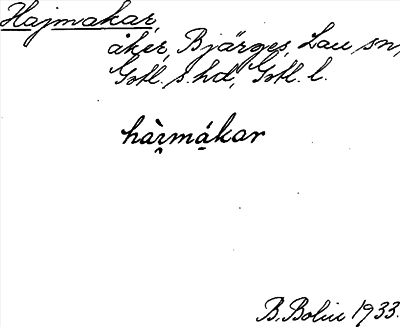 Hajmakar,
åker, Bjärges, Lau sn,
Gotl. s. hd, Gotl. l.
hàr̥má̱kar
B. Bolin 1933.